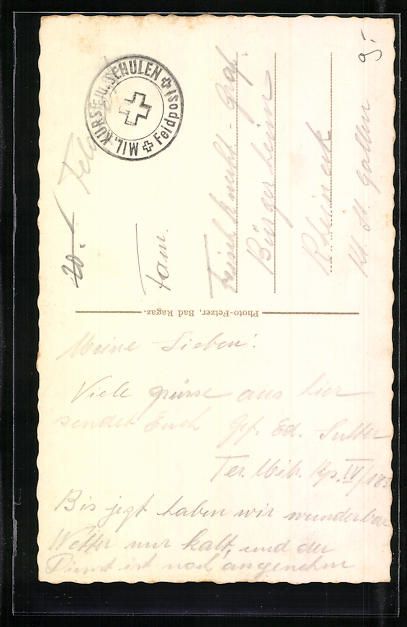 MIL. KURSE U. SCHULEN
Feldpost
Feld
20.-
9.-
Fam.
Bürgerheim
Rheineck
Kt. St. Gallen
Photo-Fetzer, Bad Ragaz.
Meine Lieben!
Viele grüsse aus hier
sendet Euch Gef. Ed. Sutter
Ter. Mib. Kp. IV/
Bis jezt haben wir wunderbar
Wetter nur kalt, und der
Dienst ist noch angenehm